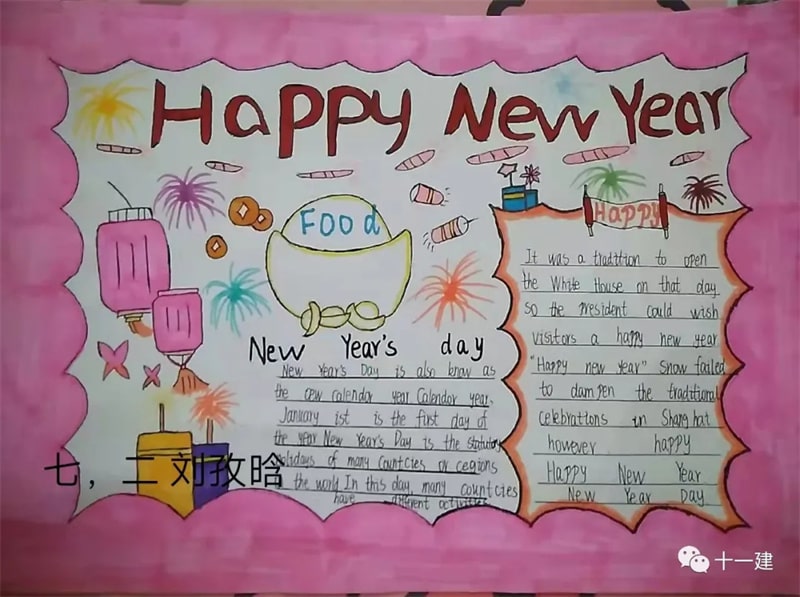 Happy New Year
Food
New Year's day
New Year's Day is also know as
the cew calendar year Calendor year,
January ist is the first day of
the year New Year's Day is the statutory
holidays of many Countcies or cegions
the world In this day, many countcies
have different activities
Happy
It was a tradition to open
the White House on that day
so the president could wish
visitors a happy new year
"Happy new year" Snow failed
to dampen the traditional
celebrations in Shang hat
however happy
Happy New Year
New Year Day
七，二 刘孜晗
十一建